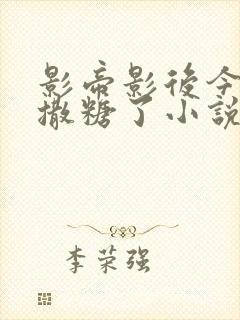 影帝影後今
撒糖了小說
李荣强